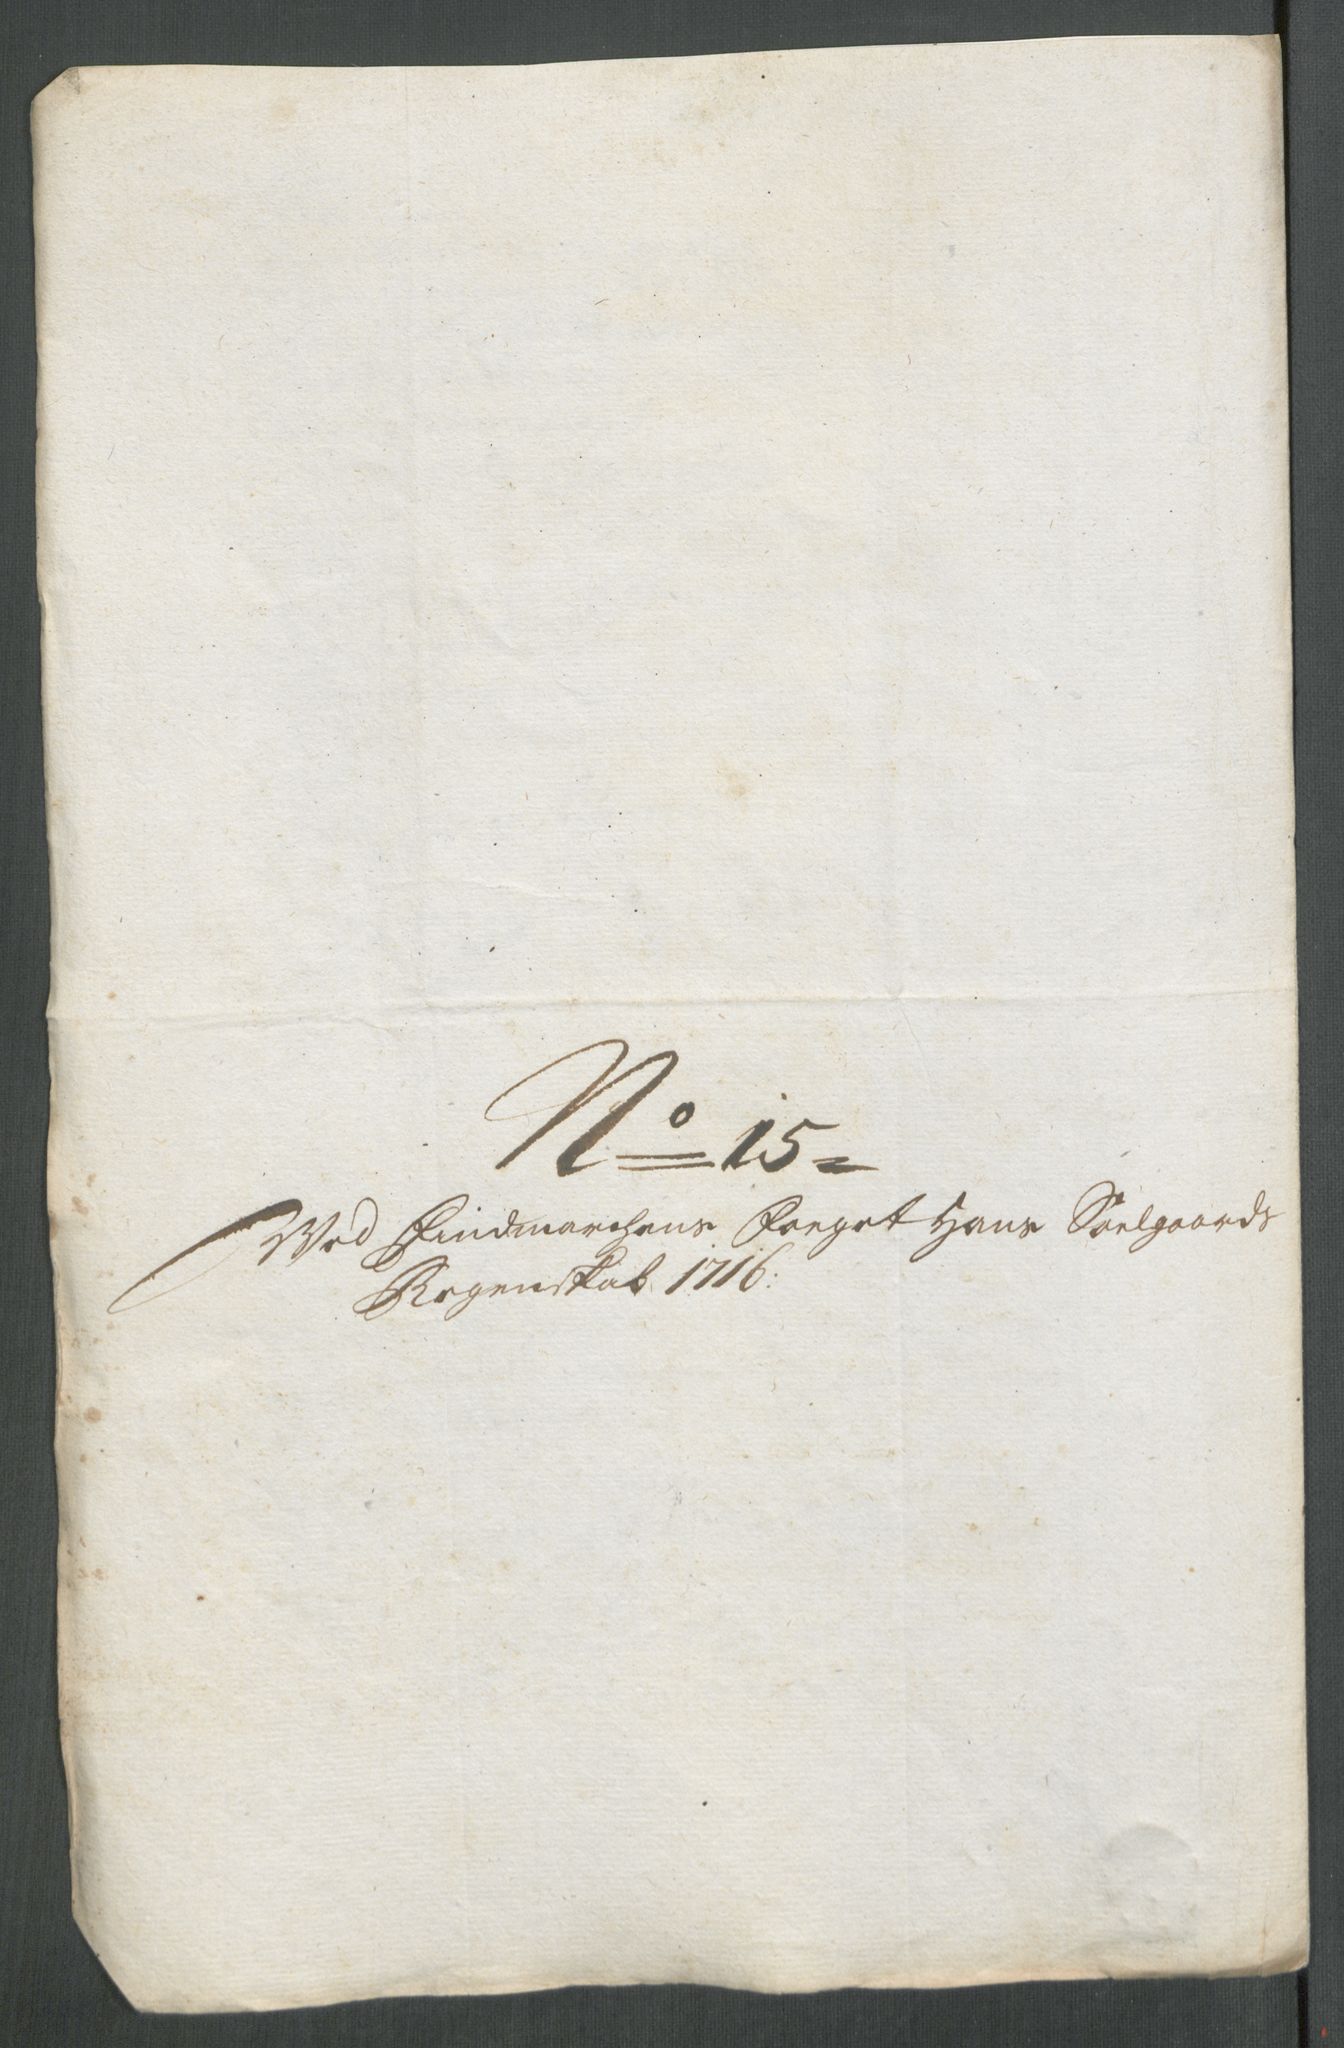 No 15
Ved Findmarchens Foeget Hans Soelgaards
Regenskab 1716: